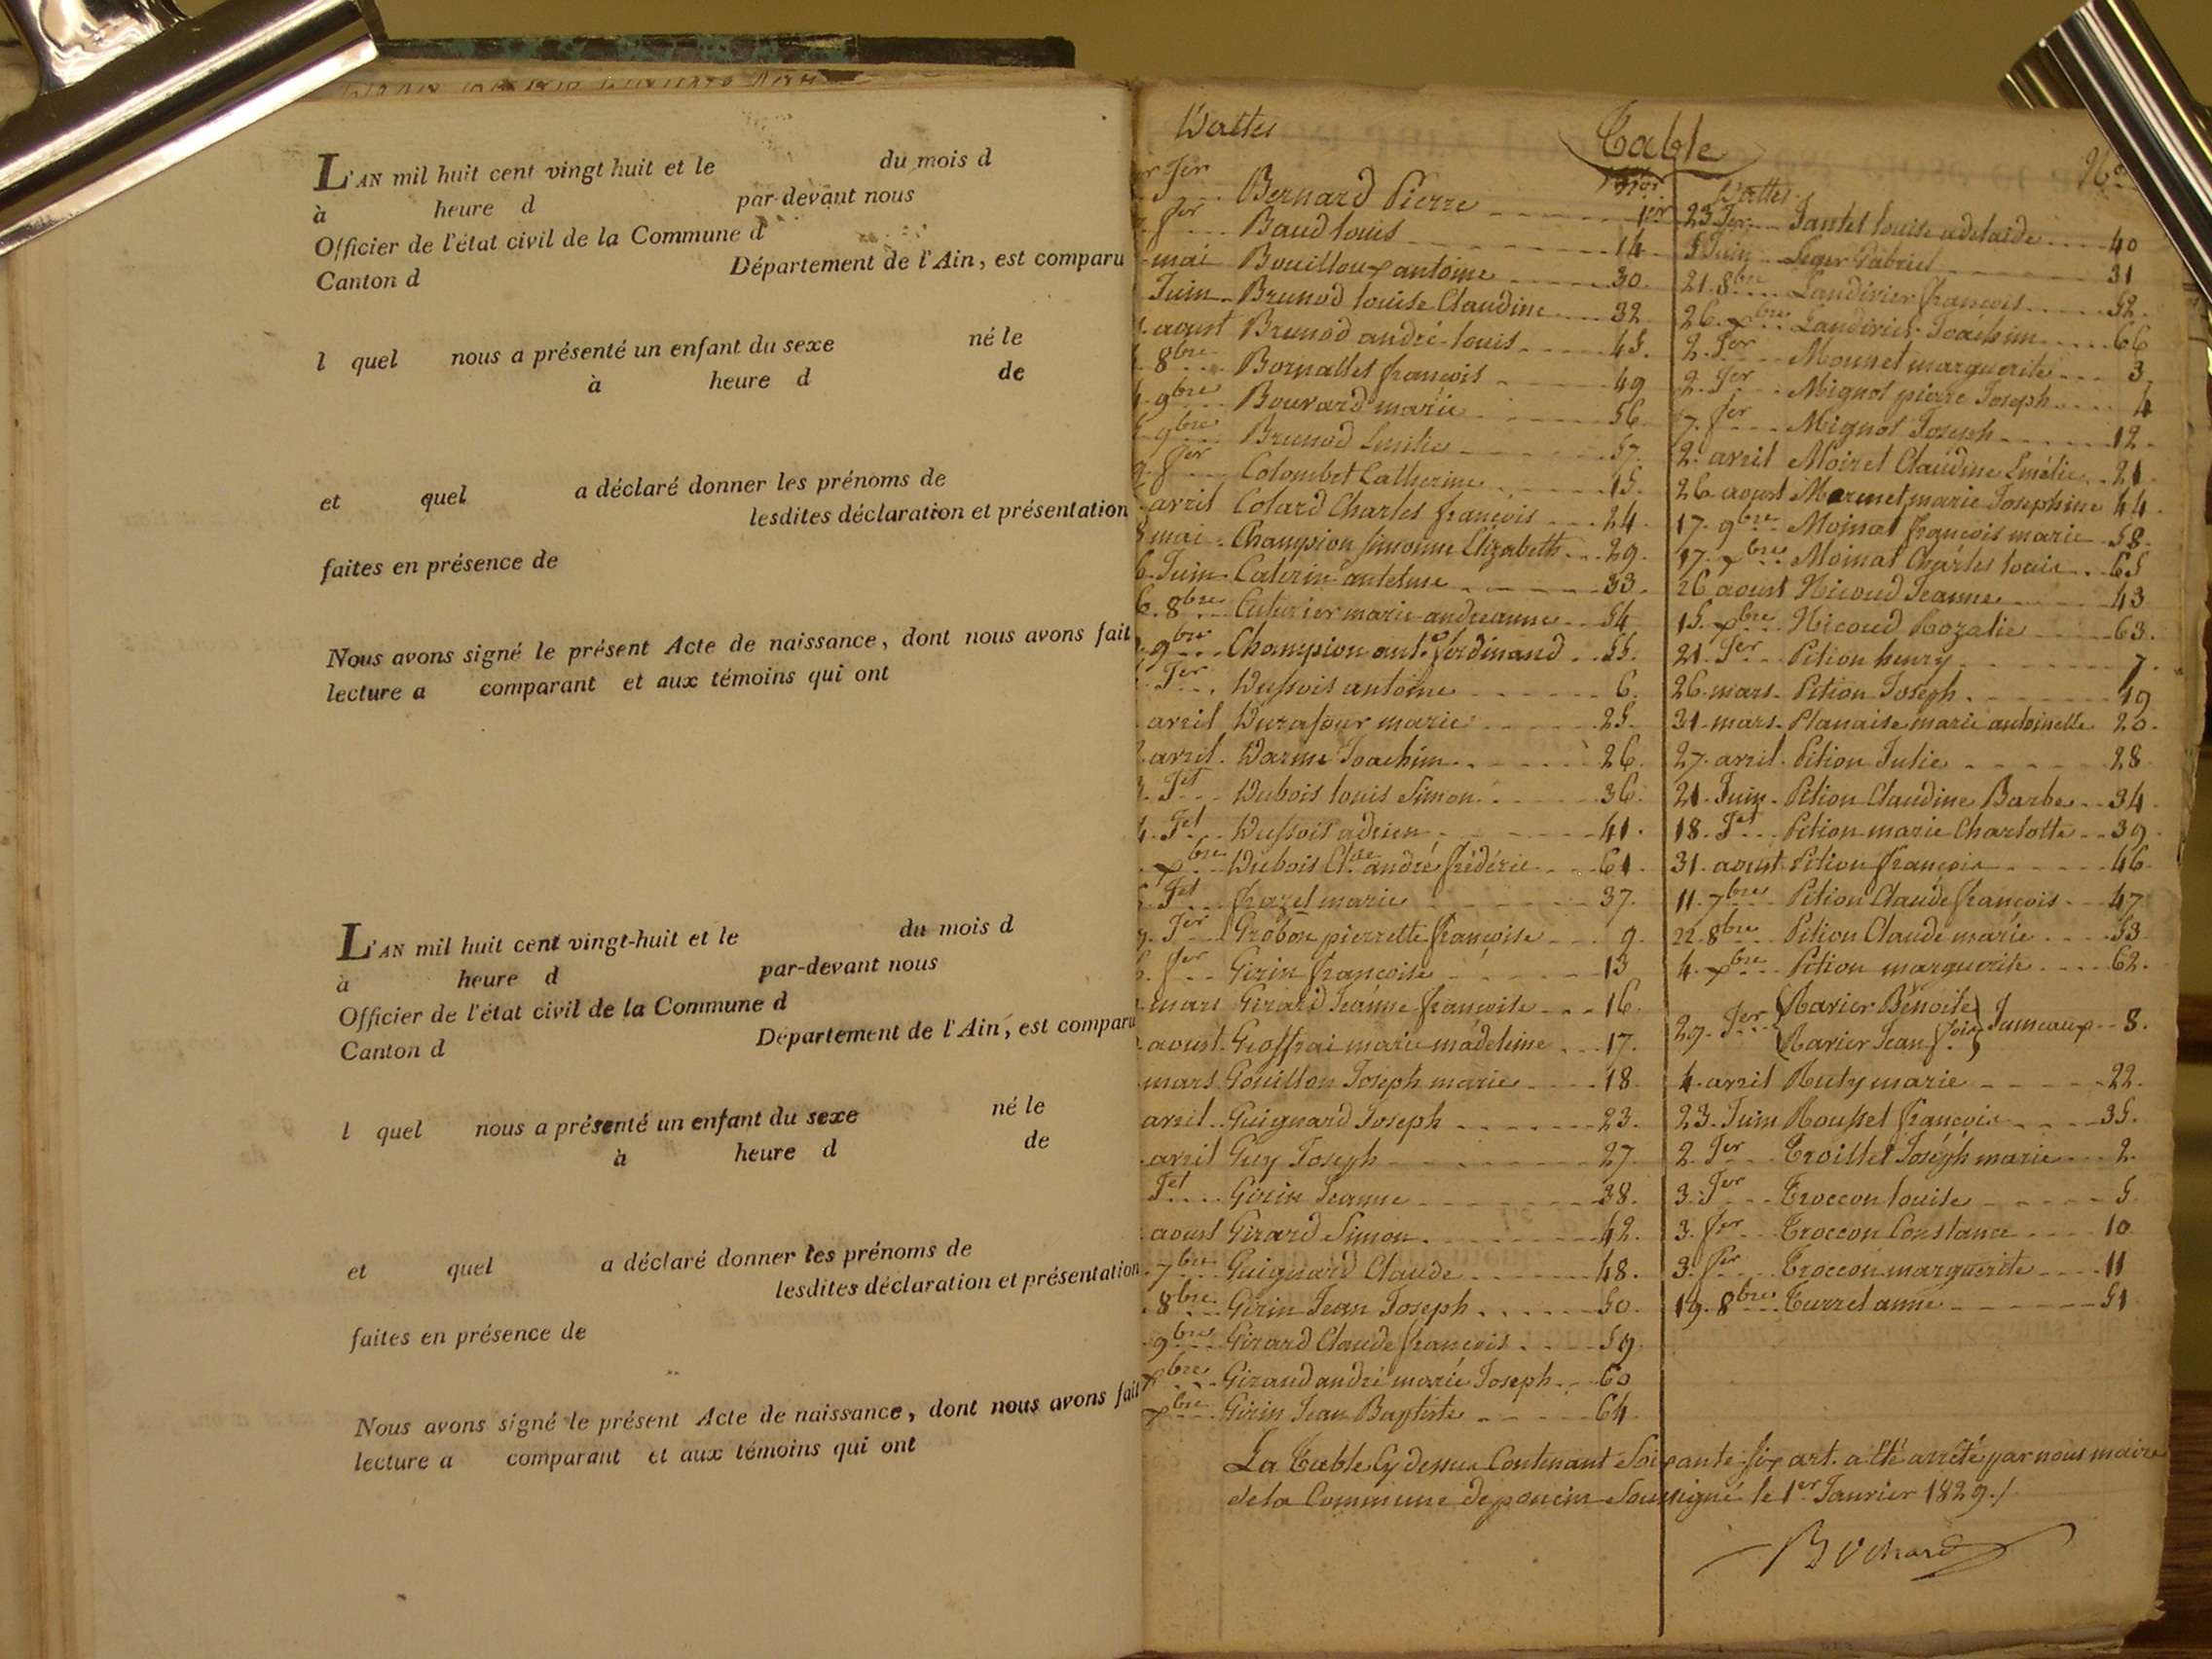 L'AN mil huit cent vingt huit et le du mois d
à heure d par-devant nous
Officier de l'état civil de la Commune d
Canton d Département de l'Ain, est comparu
l quel nous a présenté un enfant du sexe né le
à heure d de
et quel a déclaré donner les prénoms de
lesdites déclaration et présentation
faites en présence de
Nous avons signé le présent Acte de naissance, dont nous avons fait
lecture a comparant et aux témoins qui ont
L'AN mil huit cent vingt-huit et le du mois d
à heure d par-devant nous
Officier de l'état civil de la Commune d
Canton d Département de l'Ain, est comparu
l quel nous a présenté un enfant du sexe né le
à heure d de
et quel a déclaré donner les prénoms de
lesdites déclaration et présentation
faites en présence de
Nous avons signé le présent Acte de naissance, dont nous avons fait
lecture a comparant et aux témoins qui ont
Table
Dattes
Jer Bernard Pierre 1er
fer Baud louis 14
mai Bouilloux antoine 30
Juin Brunod louise Claudine 32
aoust Brunod andré louis 45
8bre Bornallet françois 49
9bre Bouvard marie 56
9bre Brunod Emilie 57
fer Colombet Catherine 15
avril Colard Charles françois 24
mai Champion simonne Elizabeth 29
Juin Caterin antelme 33
8bre Cuturier marie andreanne 54
9bre Champion ant.e ferdinand 55
Jer Dussois antoine 6
avril Durafour marie 25
avril Darme Joachim 26
Jet Dubois louis Simon 36
Jet Dussois adrien 41
xbre Dubois Cl. andré frédéric 61
Jet frazel marie 37
Jer Grobon pierrette françoise 9
fer Girin françoise 13
mars Girard Jeanne françoise 16
aoust Geoffrai marie madeleine 17
mars Gouillon Joseph marie 18
avril Guignard Joseph 23
avril Guy Joseph 27
Jet Girin Jeanne 38
aoust Girard Simon 42
7bre Guignard Claude 48
8bre Girin Jean Joseph 50
9bre Girard Claude françois 59
xbre Giraud andré marie Joseph 60
xbre Girin Jean Baptiste 64
Dattes Nos
23 Jer Jantet louise adelaïde 40
5 Juin Leger Gabriel 31
21 8bre Landirier françois 52
26 xbre Landirier Joachim 66
2 Jer Monnet marguerite 3
2 Jer Mignot pierre Joseph 4
7 fer Mignot Joseph 12
2 avril Moiret Claudine Emélie 21
26 aoust Mermet marie Josephine 44
17 9bre Moinat françois marie 58
17 xbre Moinat Charles louis 65
26 aoust Nicoud Jeanne 43
15 xbre Nicoud Rozalie 63
21 Jer Pition henry 7
26 mars Pition Joseph 19
31 mars Planaise marie antoinette 20
27 avril Pition Julie 28
21 Juin Pition Claudine Barbe 34
18 Jet Pition marie Charlotte 39
31 aoust Pition françois 46
11 7bre Pition Claude françois 47
22 8bre Pition Claude marie 53
4 xbre Pition marguerite 62
29 Jer Ravier Bénoite
Ravier Jean fois Jumeaux 8
4 avril Ruty marie 22
23 Juin Roussel françois 35
2 Jer Troillet Joseph marie 2
3 Jer Troccon louise 5
3 fer Troccon Constance 10
3 fer Troccon marguerite 11
19 8bre Turrel anne 51
La Table Cy dessus Contenant Soixante six art. a été arrêté par nous maire
de la Commune de poncin Soussigné le 1er Janvier 1829./
Bochard